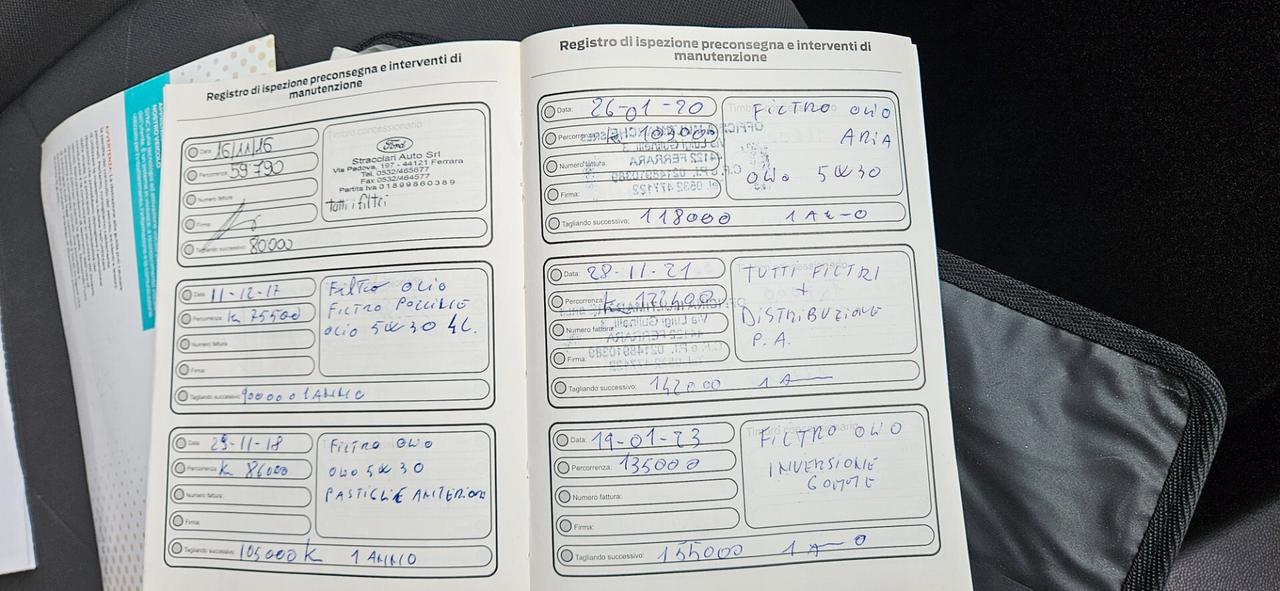 Registro di ispezione preconsegna e interventi di
manutenzione
Data: 16/11/16
Percorrenza: 59790
Numero fattura:
Firma:
Tagliando successivo: 80000
Timbro concessionario
Ford
Stracciari Auto Srl
Via Padova, 197 - 44121 Ferrara
Tel. 0532/465677
Fax 0532/464577
Partita Iva 01899860389
tutti i filtri
Data: 11-12-17
Percorrenza: K 75500
Numero fattura:
Firma:
Tagliando successivo: 90000 o 1 ANNO
FILTRO OLIO
FILTRO POLLINE
OLIO 5W30 4L.
Data: 29-11-18
Percorrenza: K 86000
Numero fattura:
Firma:
Tagliando successivo: 105000 K 1 ANNO
FILTRO OLIO
OLIO 5W30
PASTIGLIE ANTERIORI
Registro di ispezione preconsegna e interventi di
manutenzione
Data: 26-01-20
Percorrenza: K 103000
Numero fattura:
Firma:
Tagliando successivo: 118000 1 ANNO
Timbro concessionario
FILTRO OLIO
ARIA
OLIO 5W30
Data: 28-11-21
Percorrenza: K
Numero fattura:
Firma:
Tagliando successivo: 142000 1
TUTTI FILTRI
+
DISTRIBUZIONE
P.A.
Data: 19-01-23
Percorrenza: 135000
Numero fattura:
Firma:
Tagliando successivo: 155000 1 ANNO
Timbro concessionario
FILTRO OLIO
INVERSIONE
GOMME